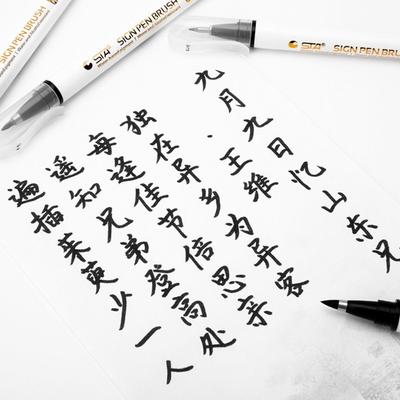 STA® SIGN PEN BRUSH
STA® SIGN PEN BRUSH
SIGN PEN BRUSH
九月九日忆山东兄
·王维
独在异乡为异客
每逢佳节倍思亲
遥知兄弟登高处
遍插茱萸少一人